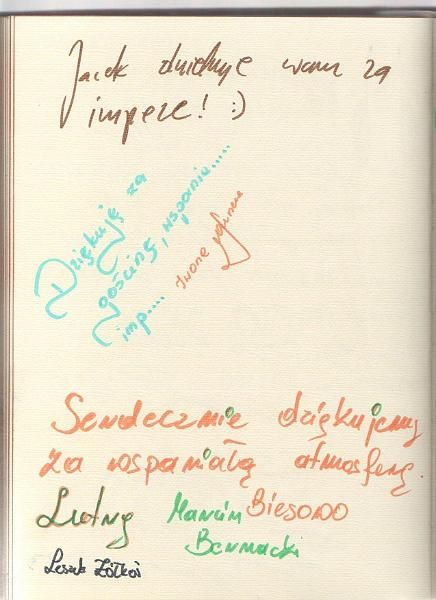 Jacek dziękuje wam za
impeze! :)
Dziękuję za
gościnę, wspaniu.....
imp....
Iwona
Serdecznie dziękujemy
za wspaniałą atmosferę.
Lutry
Marcin
Biesowo
Leszek